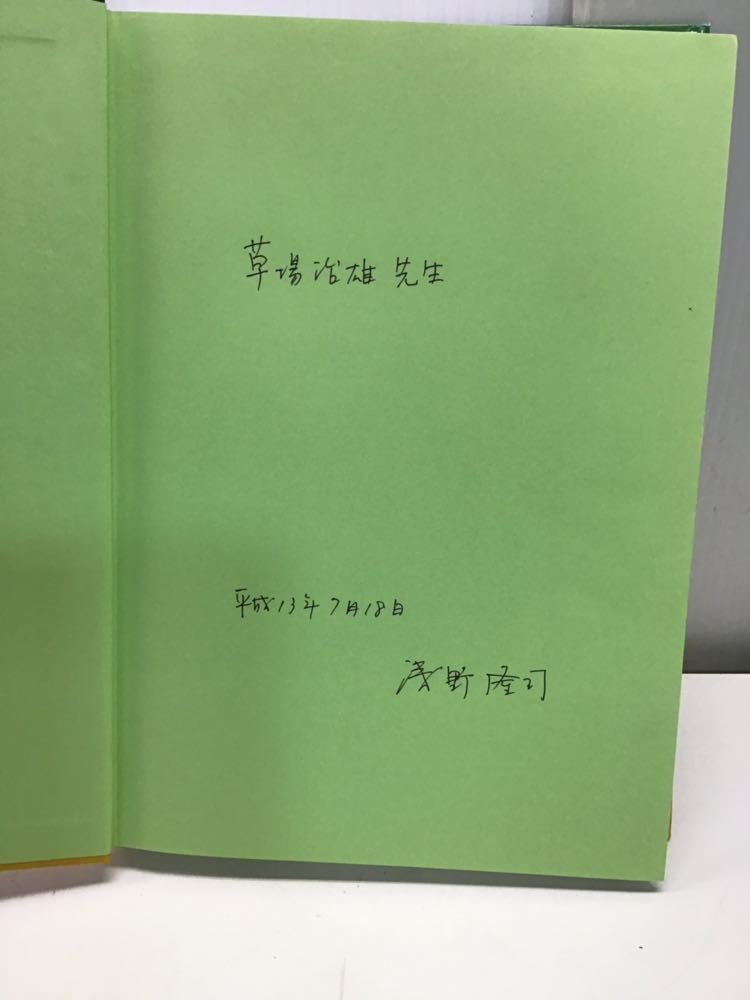 草場治雄 先生
平成13年7月18日
浅野隆司